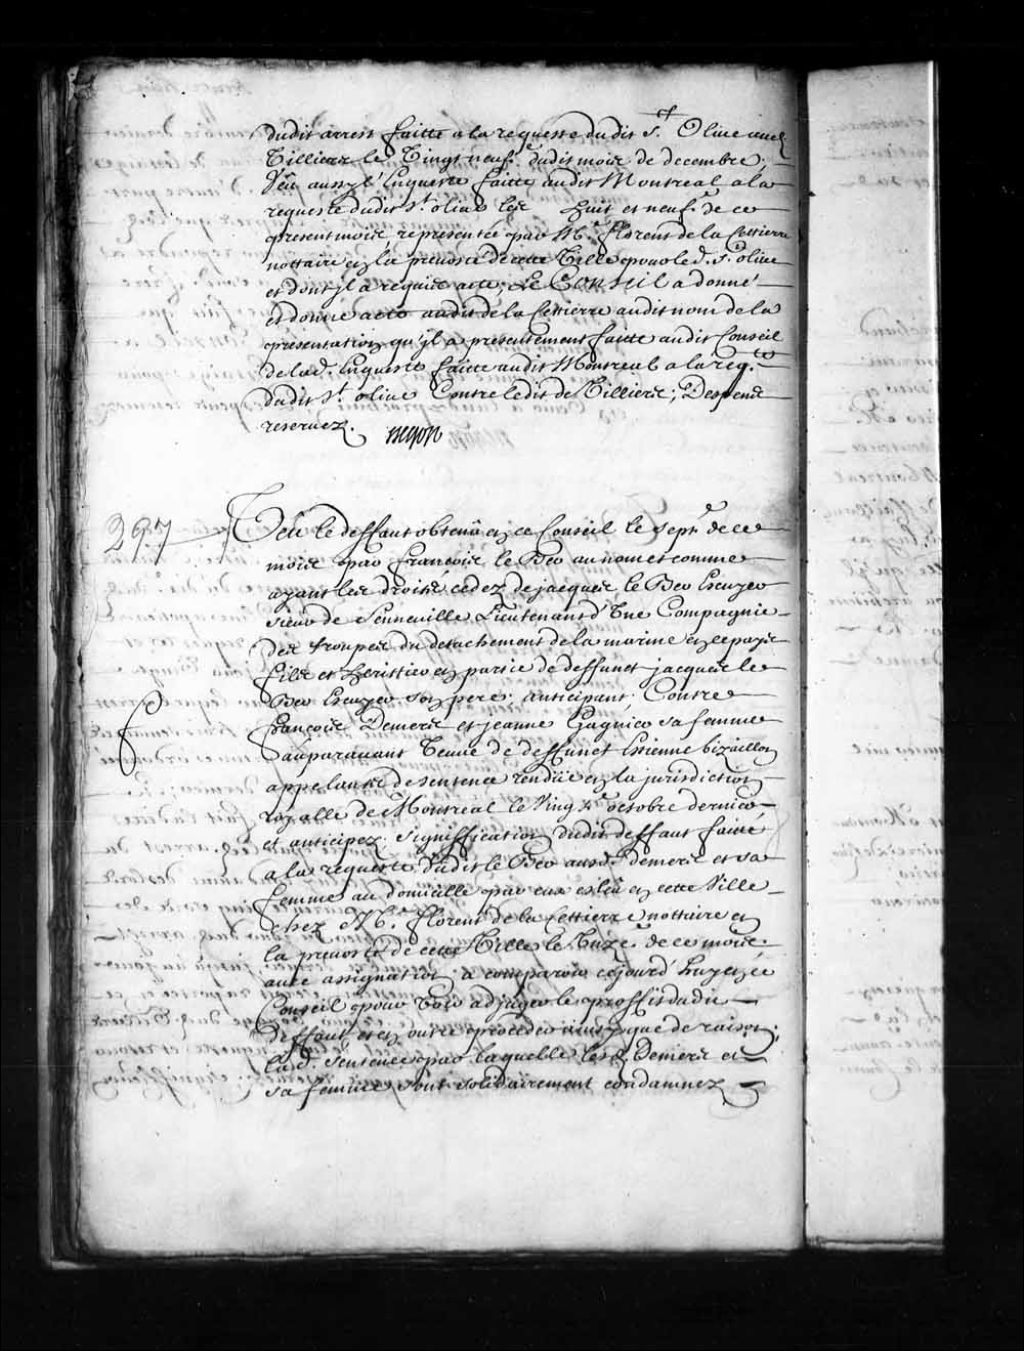 dudit arrest faitte a la requeste dudit s.r Olive aud.
Tillierz le Vingt neuf.e dudit mois de decembre,
Veü aussy l'Enqueste faitte audit Montreal a la
requeste dudit s.r olive les huit et neuf.e de ce
present mois, representée par M.e florent de la Cettierre
nottaire en la prevosté de cette Ville pour led. s.r olive
et dont il a requis acte; Le Conseil a donné
et donne acte audit de la Cettierre audit nom de la
presentation qu'il a presentement faitte audit Conseil
de lad. Enqueste faitte audit Montreal a la req.te
dudit s.r olive Contre ledit de Tillierz, Despens
reservez.
Begon
297
Veü le deffaut obtenû en ce Conseil le sept.e de ce
mois par francois le Ber au nom et comme
ayant les droits cedez de jacques le Ber Escuyer
sieur de Senneville Lieutenant d'Une Compagnie
des troupes du detachement de la marine en ce pays
fils et heritier en partie de deffunct jacques le
Ber Escuyer son pere anticipant, Contre
françois Demers et jeanne Gagnier sa femme
auparavant Veuve de deffunct Estienne bizaillon
appelants de sentence rendüe en la jurisdiction
royalle de Montreal le Vingt octobre dernier
et anticipez; Signiffication dudit deffaut faitte
a la requeste dudit le Ber ausd. demers et sa
femme au domicille par eux eslû en cette Ville
chez M.e florent de la Cettierre nottaire en
la prevosté de cette Ville le unze.e de ce mois
avec assignation a comparoir cejourd'huy en ce
Conseil pour Voir adjuger le proffit dudit
deffaut, et en outre proceder ainsy que de raison;
lad. sentence par laquelle lesd. Demers et
sa femme sont solidairement condamnez